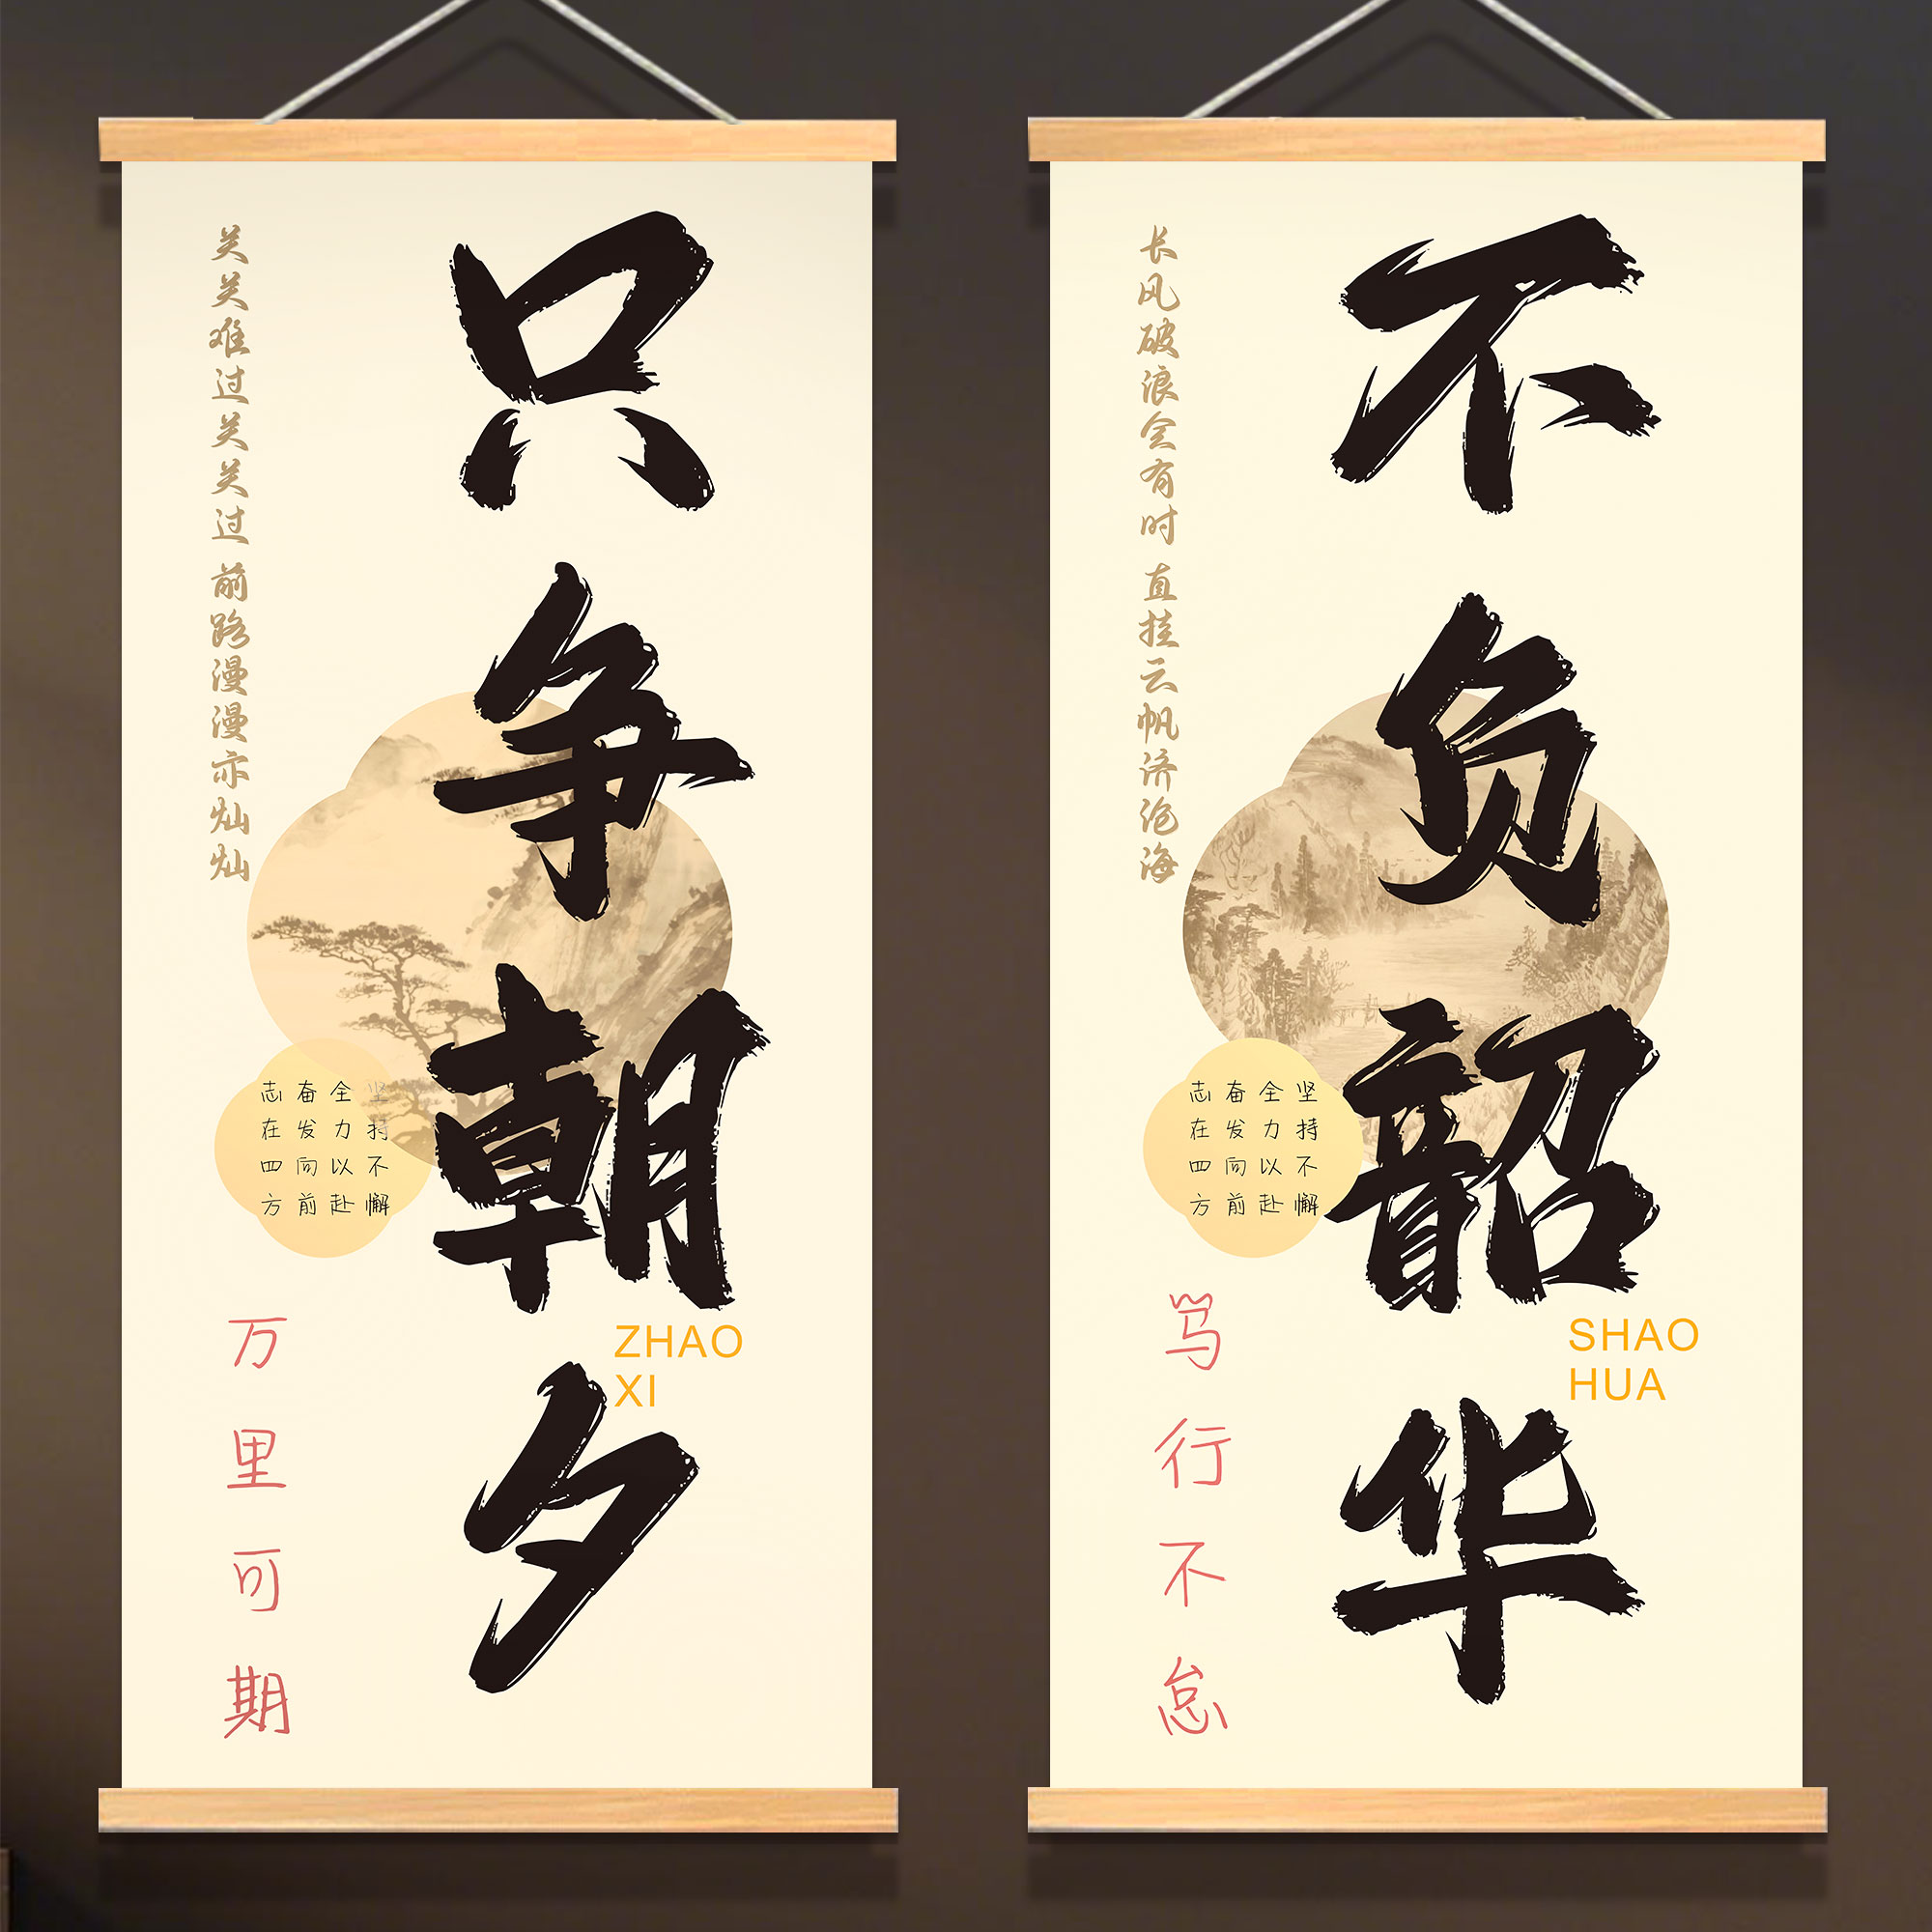 只争朝夕
ZHAO
XI
关关难过关关过 前路漫漫亦灿灿
坚持不懈
全力以赴
奋发向前
志在四方
万里可期
不负韶华
SHAO
HUA
长风破浪会有时 直挂云帆济沧海
坚持不懈
全力以赴
奋发向前
志在四方
笃行不怠